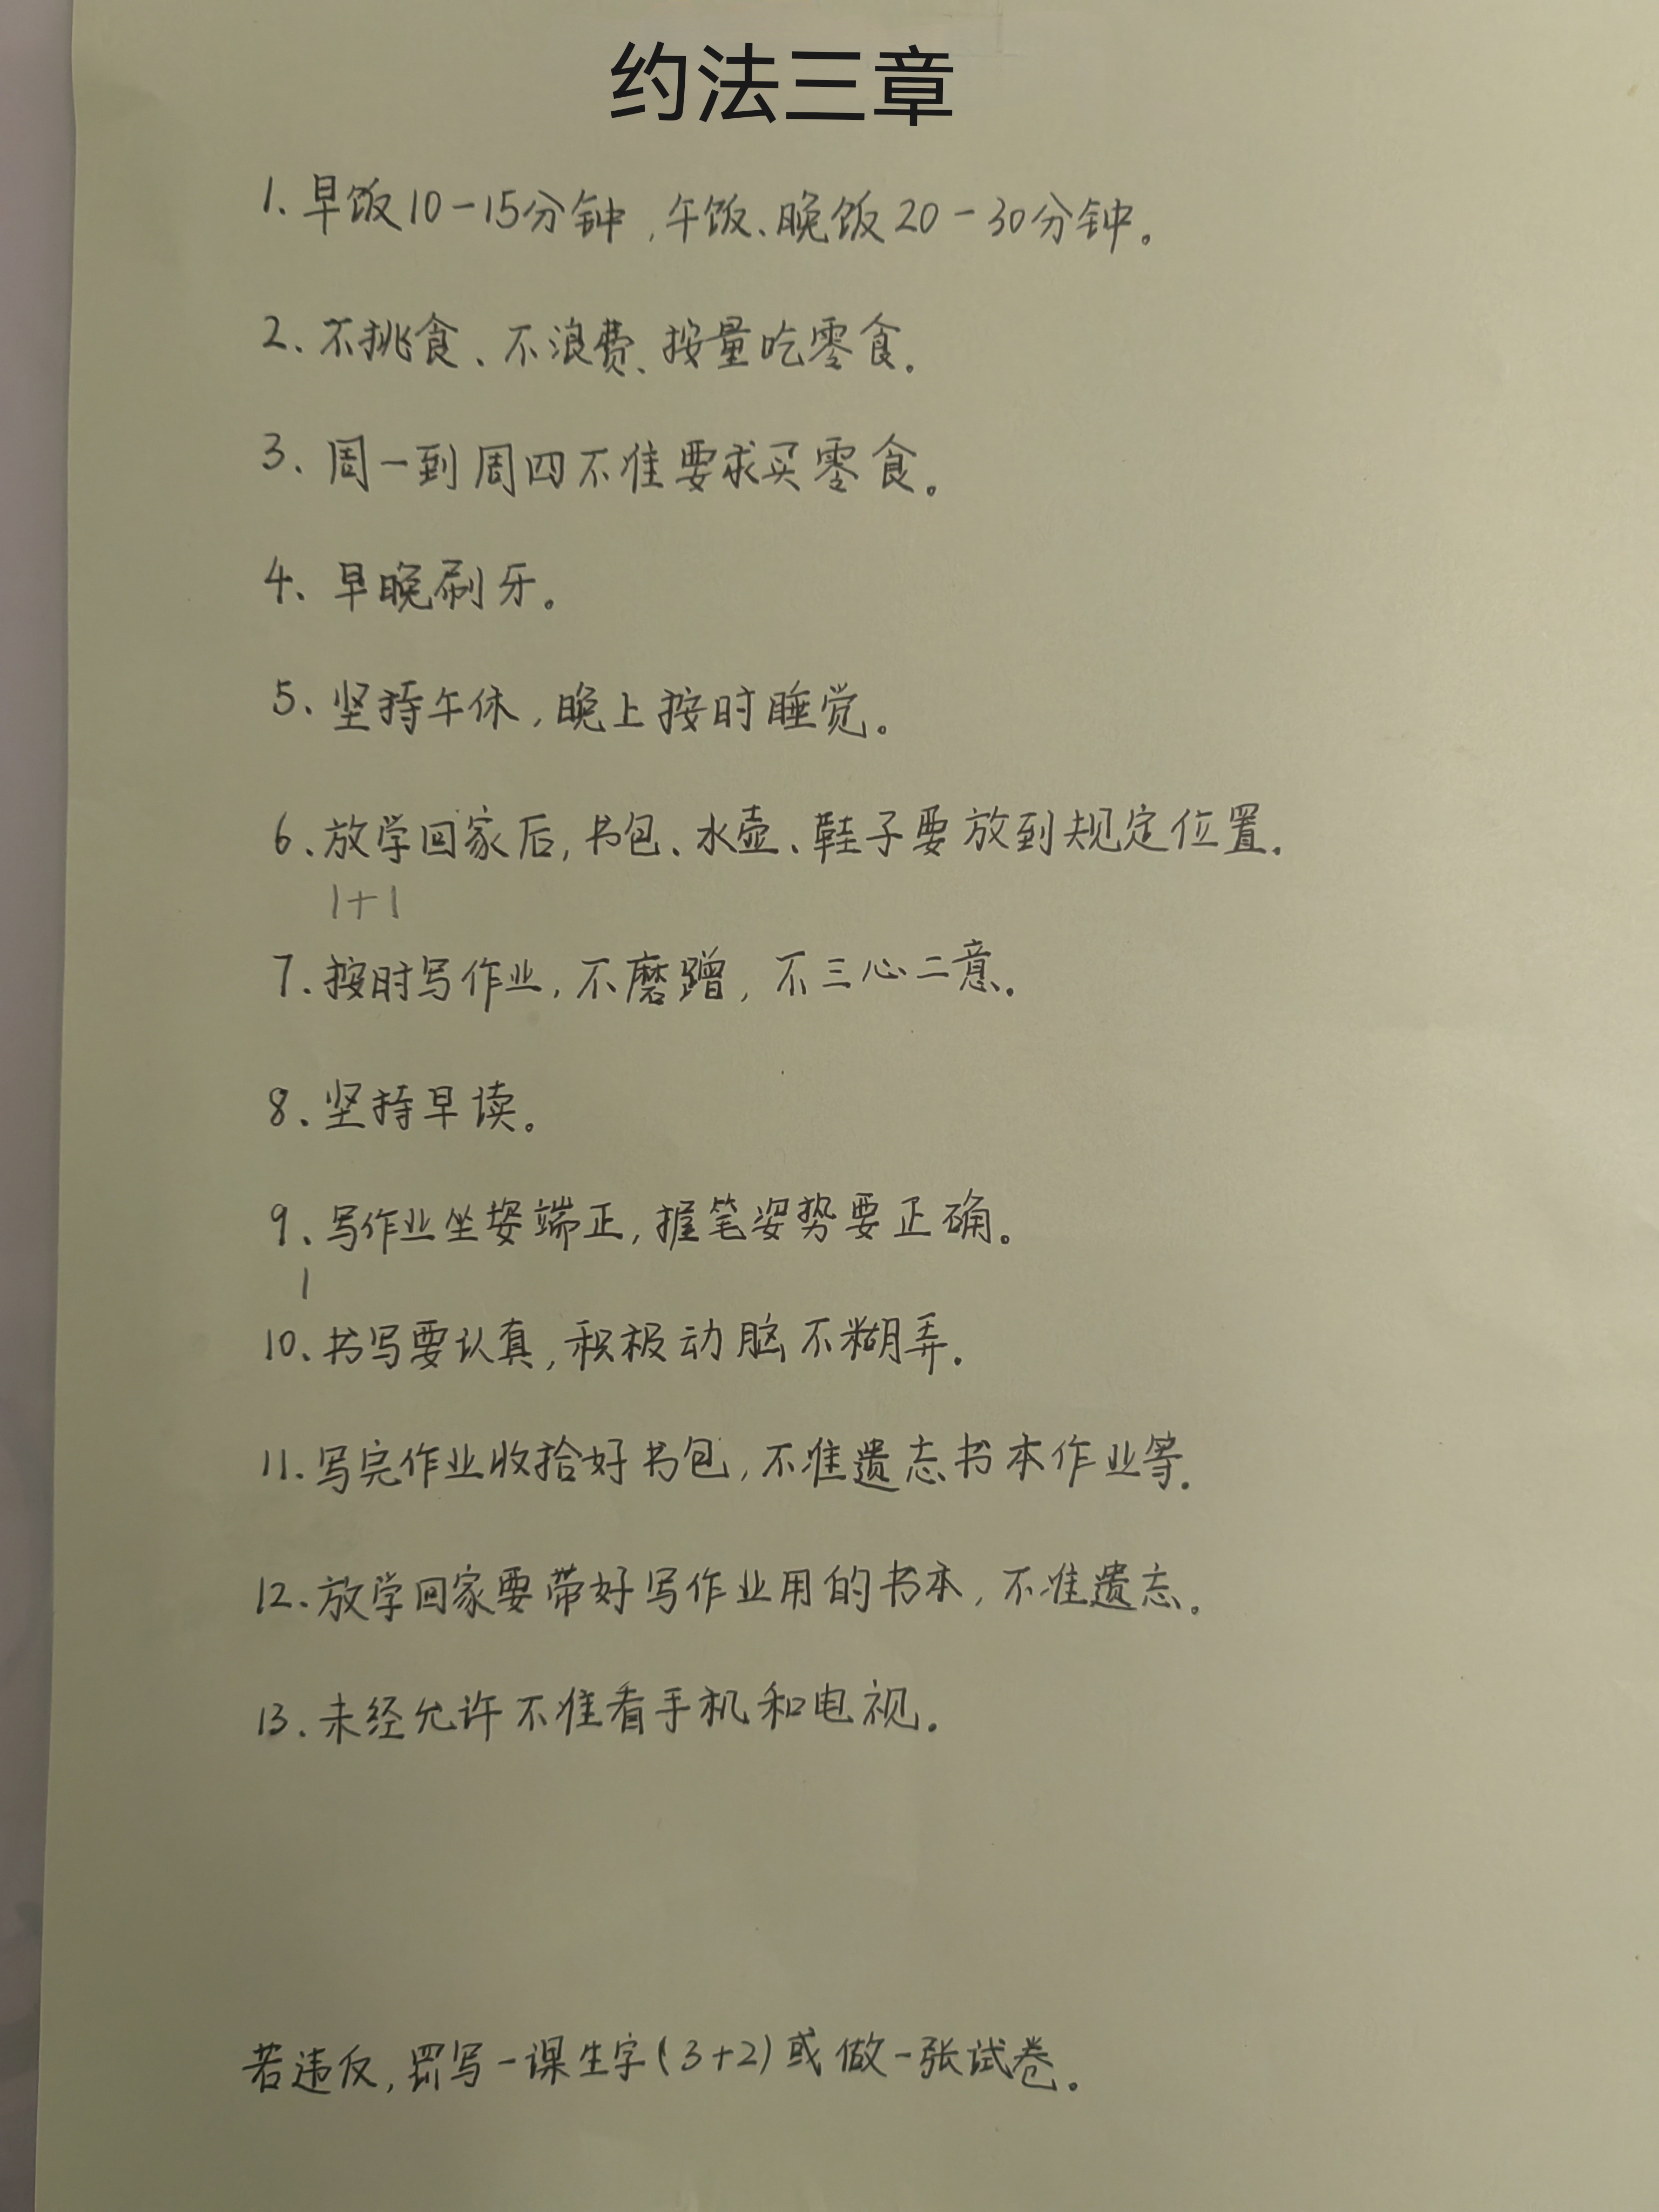 约法三章
1.早饭10-15分钟,午饭、晚饭20-30分钟。
2、不挑食、不浪费、按量吃零食.
3、周一到周四不准要求买零食。
4、早晚刷牙。
5、坚持午休,晚上按时睡觉。
6、放学回家后,书包、水壶、鞋子要放到规定位置.
1+1
7.按时写作业,不磨蹭,不三心二意.
8、坚持早读。
9、写作业坐姿端正,握笔姿势要正确。
1
10、书写要认真,积极动脑不糊弄.
11.写完作业收拾好书包,不准遗忘书本作业等.
12.放学回家要带好写作业用的书本,不准遗忘.
13.未经允许不准看手机和电视.
若违反,罚写一课生字(3+2)或做一张试卷。